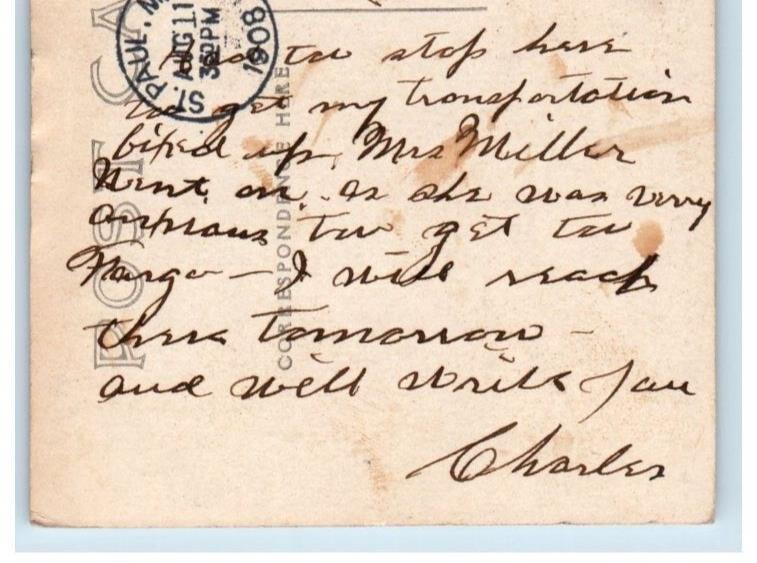 ST. PAUL, M
AUG 11
3 PM
1908
POST CA
CORRESPONDENCE HERE
Had to stop here
to get my transportation
fixed up, Mrs Miller
Went on. as she was very
anxious to get to
Fargo - I will reach
there tomorrow -
and will write you
Charles